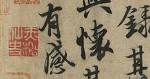 錄其
興懷其
有感